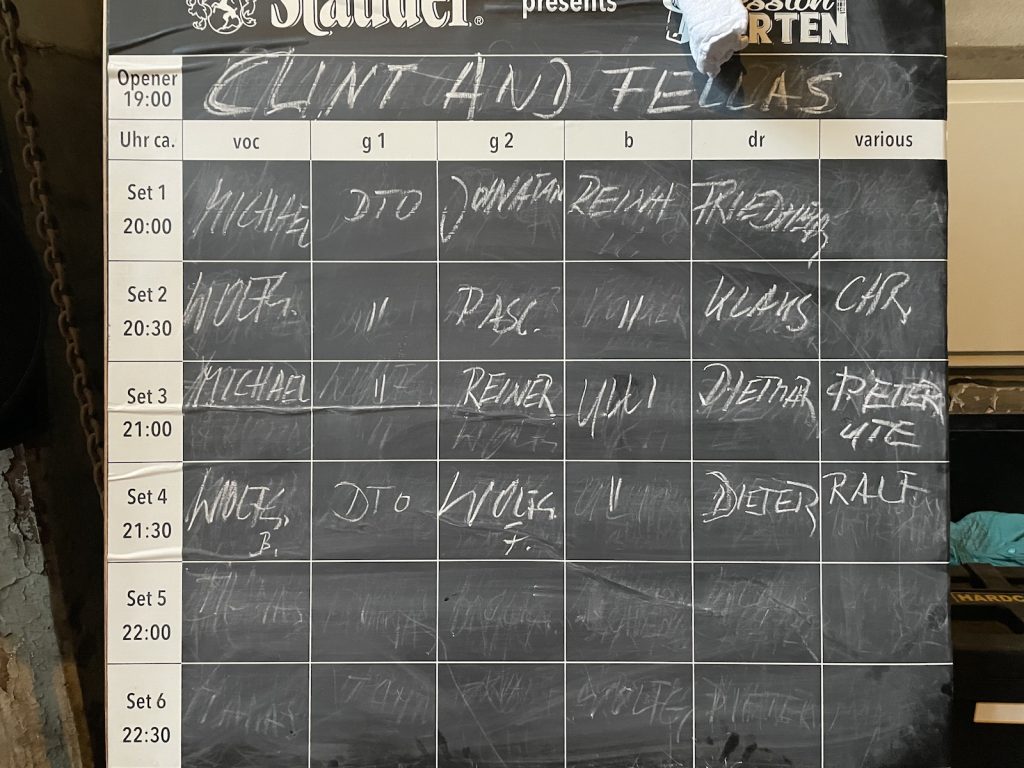 Stauder®
presents
Session
RTEN
Opener
19:00
CLINT AND FELLAS
Uhr ca. voc g 1 g 2 b dr various
Set 1
20:00
MICHAEL DTO JOHNATAN REINH
Set 2
20:30
WOLFG. " PASC. " KLAUS CHR.
Set 3
21:00
MICHAEL " REINER UWI DIETMAR PIETER
UTE
Set 4
21:30
WOLFG. DTO WOLFG " DIETER RALF
B. F.
Set 5
22:00
Set 6
22:30
HARDC